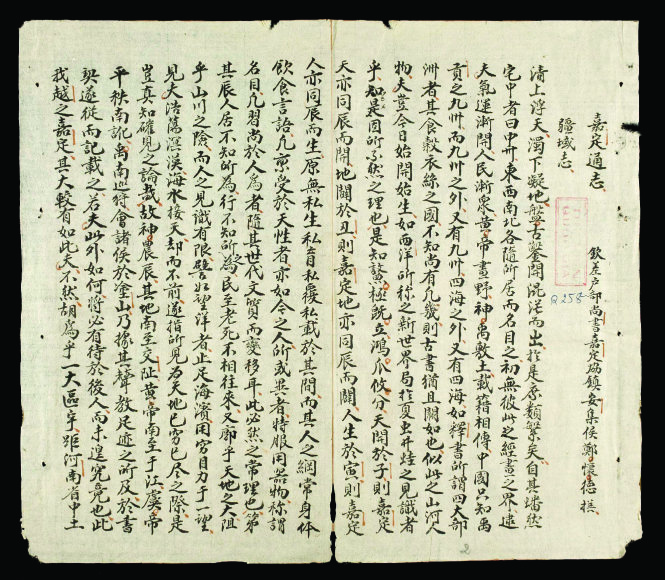 嘉定通志
疆域志
欽差户部尚書嘉定協鎮安集侯鄭懷德 撰
清上浮天濁下凝地盤古鑿開混茫而出於是庶類繁矣自其墦然
宅中者曰中州東西南北各隨所居而名目之初無彼此之經畫之界逮
夫氣運漸開人民漸衆黄帝畫野神禹敷土載籍相傳中國只知禹
貢之九州而九州之外又有九州四海之外又有四海如釋書所謂四大部
洲者其食穀衣絲之國不知尚有幾則古書猶且闕如也似此之山河人
物夫豈今日始開始生如西洋所称之新世界局於夏虫井蛙之見識者
乎知是固所必然之理也是知鰲極既立鴻爪攸分天開於子則嘉定
天亦同辰而開地闢於丑則嘉定地亦同辰而闢人生於寅則嘉定
人亦同辰而生原無私生私育私覆私載於其間而其人之綱常身体
飲食言語凢禀受於天性者亦如今之人所或異者特服用器物称謂
名目凢習尚於人為者隨其世代文質而變移耳此必然之常理也第
其辰人居不知所為行不知所之民至老死不相往來又廓乎天地之大阻
乎山川之險而人之見識有限譬如望洋者止足海濱用穷目力于一望
見夫浩蕩溟漠海水接天却而不前遂指所見為天地已穷已尽之際是
豈真知確見之論哉故神農辰其地南至交趾黄帝南至于江虞帝
平秩南訛禹南巡狩會諸侯於塗山乃據其聲教足迹之所及於書
契遂從而記載之若夫此外如何將必有待於後人而未遑究竟也此
我越之嘉定其大較有如此夫不然胡為乎一大區宇距河南省中土
Q258
2